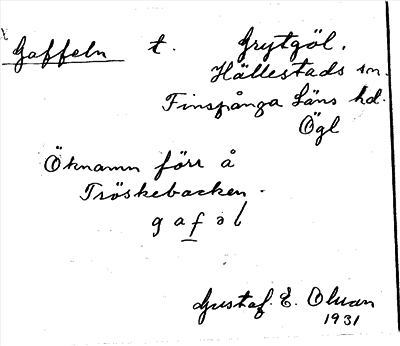 Gaffeln t. Grytgöl.
Hällestads sn.
Finspånga Läns hd.
Ögl
Öknamn förr å
Tröskebacken.
gafəl
Gustaf. E. Olsson
1931